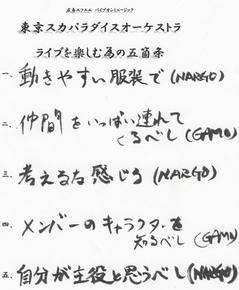 広島エフエム パイプオンミュージック
東京スカパラダイスオーケストラ
ライブを楽しむ為の五箇条
一、動きやすい服装で(NARGO)
二、仲間をいっぱい連れて
くるべし(GAMO)
三、考えるな感じろ(NARGO)
四、メンバーのキャラクターを
知るべし(GAMO)
五、自分が主役と思うべし(NARGO)